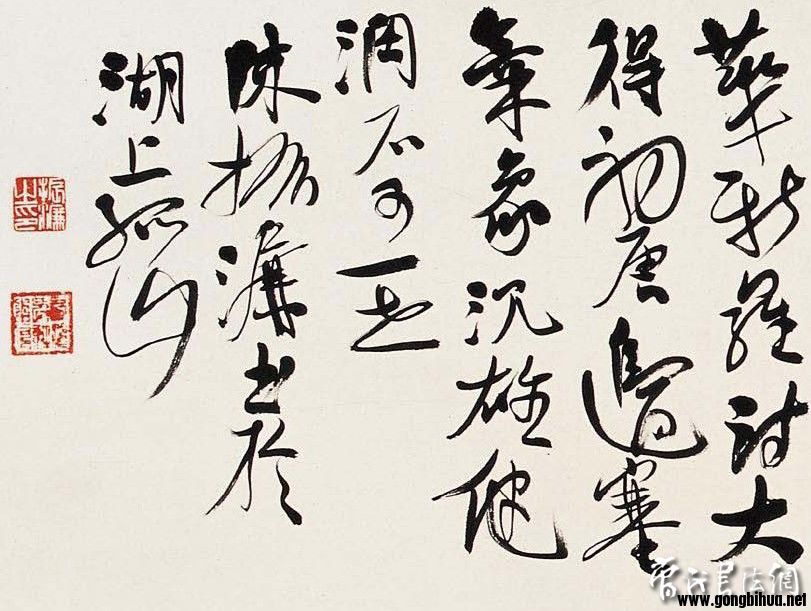 華新羅詩大
得初唐邊塞
氣象沉雄健
潤不可一世
陳振濂書於
湖上孤山
www.gongbihua.net